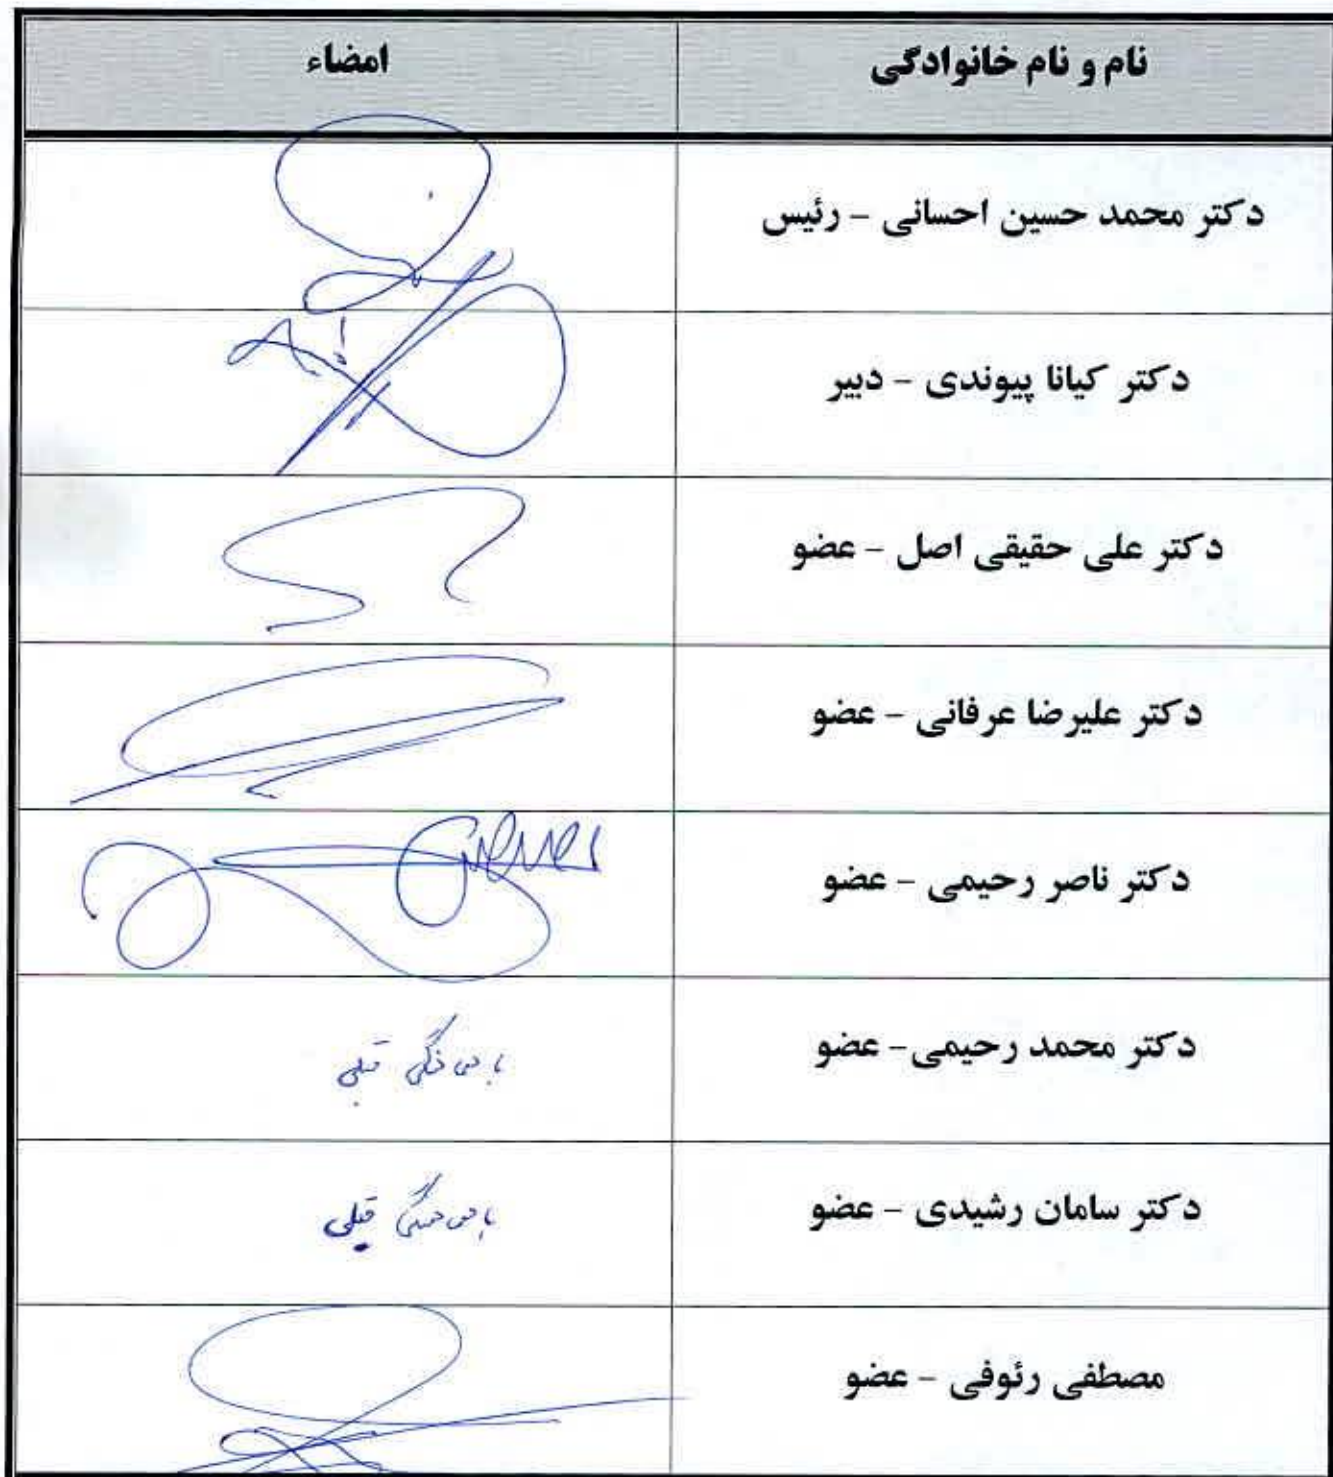 نام و نام خانوادگی امضاء
دکتر محمد حسین احسانی - رئیس
دکتر کیانا پیوندی - دبیر
دکتر علی حقیقی اصل - عضو
دکتر علیرضا عرفانی - عضو
دکتر ناصر رحیمی - عضو
دکتر محمد رحیمی - عضو با هماهنگی قبلی
دکتر سامان رشیدی - عضو با هماهنگی قبلی
مصطفی رئوفی - عضو